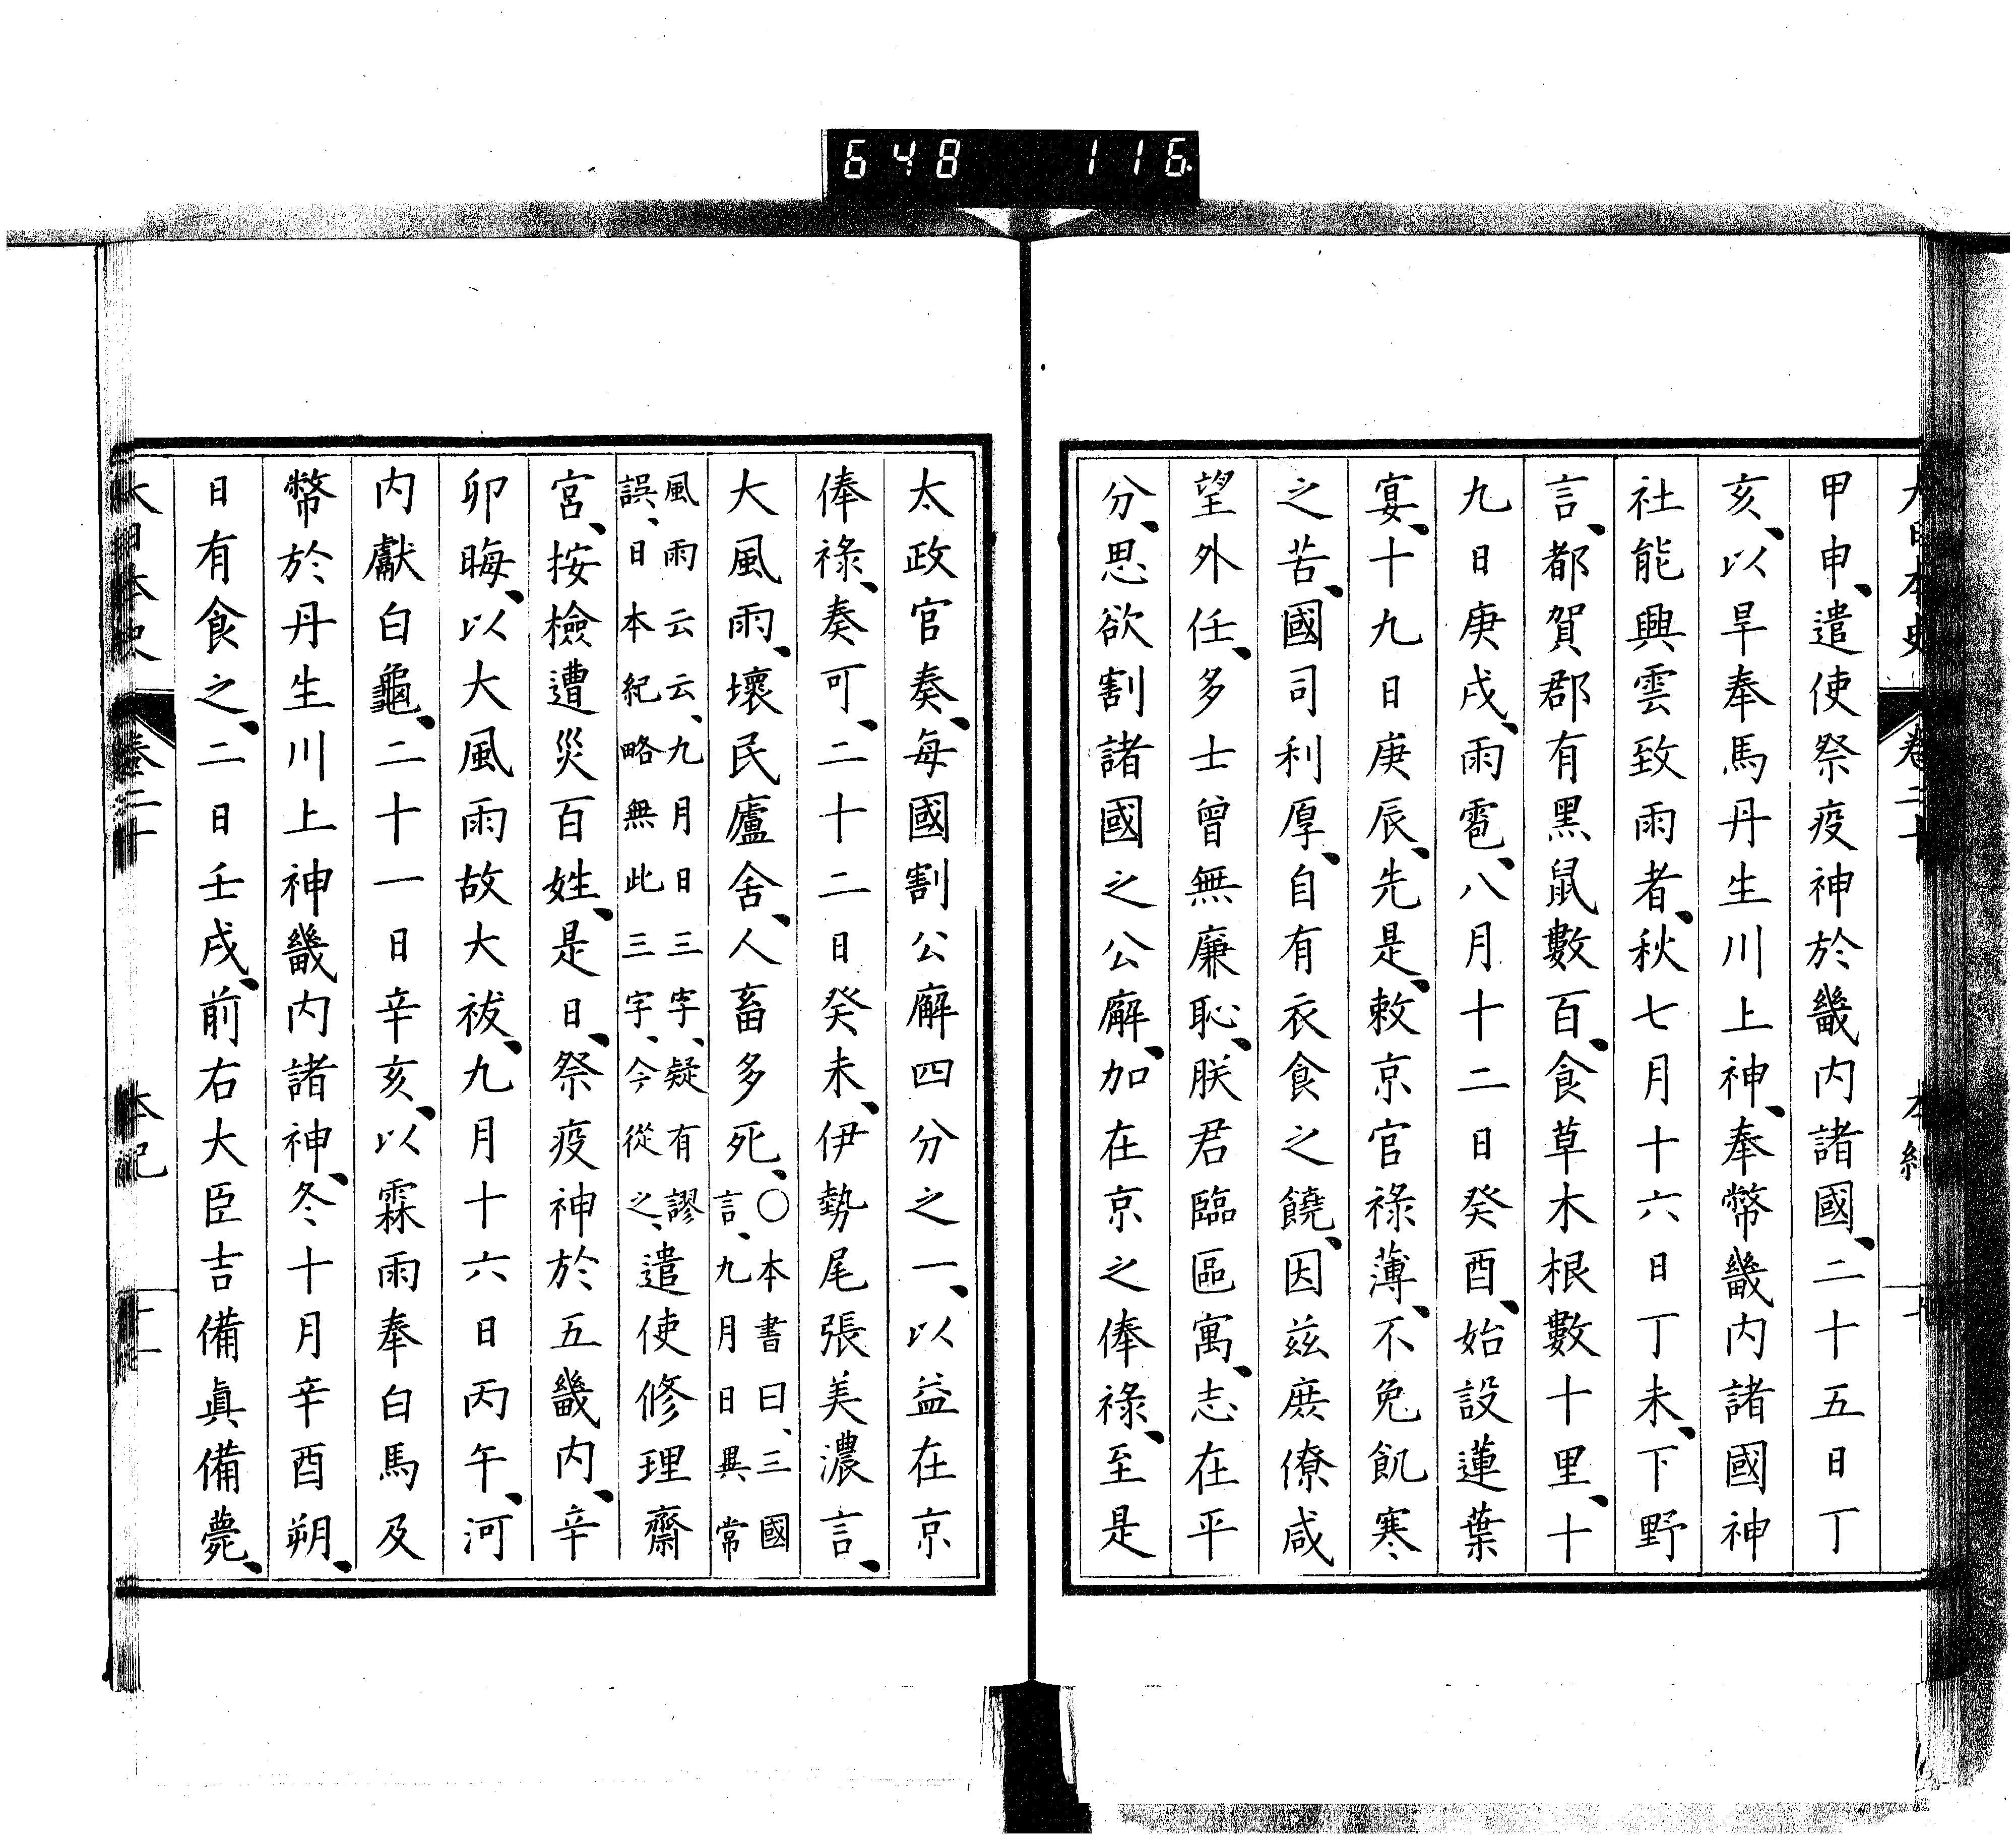 648 116
大日本史 卷二十 本紀 十
甲申、遣使祭疫神於畿内諸國、二十五日丁
亥、以旱奉馬丹生川上神、奉幣畿内諸國神
社能興雲致雨者、秋七月十六日丁未、下野
言、都賀郡有黑鼠數百、食草木根數十里、十
九日庚戌、雨雹、八月十二日癸酉、始設蓮葉
宴、十九日庚辰、先是、敕京官祿薄、不免飢寒
之苦、國司利厚、自有衣食之饒、因茲庶僚咸
望外任、多士曾無廉恥、朕君臨區寓、志在平
分、思欲割諸國之公廨、加在京之俸祿、至是
太政官奏、每國割公廨四分之一、以益在京
俸祿、奏可、二十二日癸未、伊勢尾張美濃言、
大風雨、壞民廬舍、人畜多死、〇本書曰、三國言、九月日異常
風雨云云、九月日三字、疑有謬誤、日本紀略無此三字、今從之、遣使修理齋
宮、按檢遭災百姓、是日、祭疫神於五畿内、辛
卯晦、以大風雨故大祓、九月十六日丙午、河
内獻白龜、二十一日辛亥、以霖雨奉白馬及
幣於丹生川上神畿内諸神、冬十月辛酉朔、
日有食之、二日壬戌、前右大臣吉備眞備薨、
大日本史 卷二十 本紀 十一